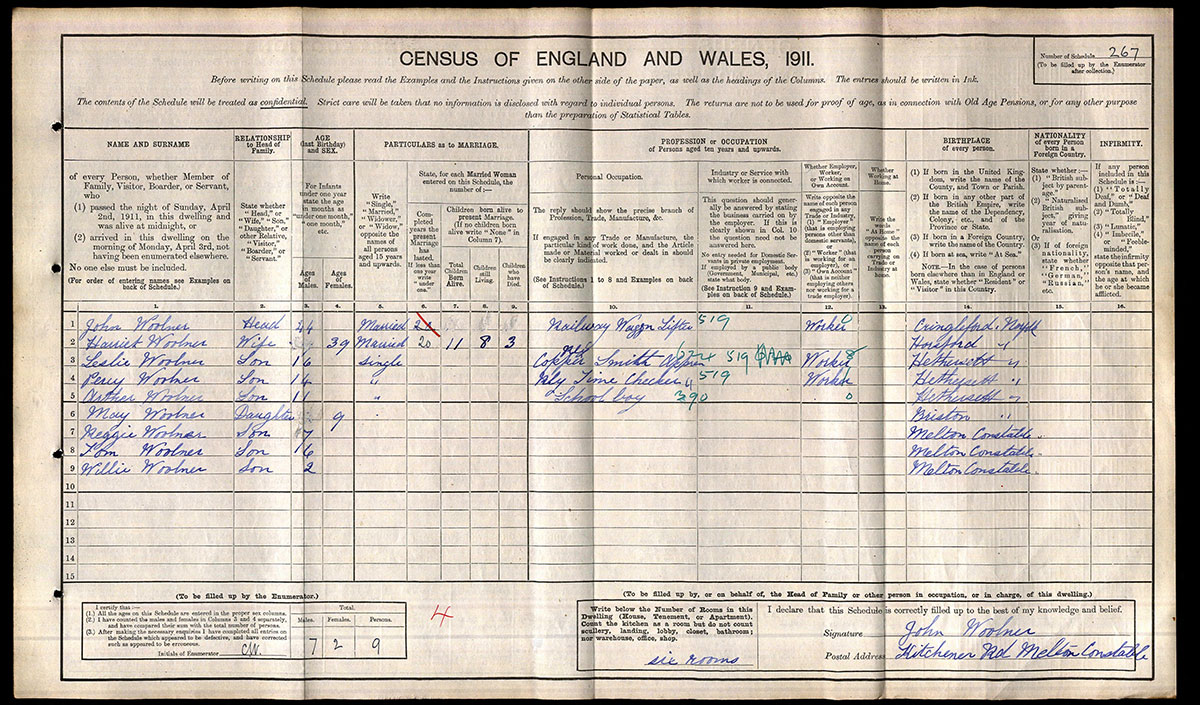 CENSUS OF ENGLAND AND WALES, 1911.
Number of Schedule 267
(To be filled up by the Enumerator after collection.)
Before writing on this Schedule please read the Examples and the Instructions given on the other side of the paper, as well as the headings of the Columns. The entries should be written in Ink.
The contents of the Schedule will be treated as confidential. Strict care will be taken that no information is disclosed with regard to individual persons. The returns are not to be used for proof of age, as in connection with Old Age Pensions, or for any other purpose
than the preparation of Statistical Tables.
NAME AND SURNAME
of every Person, whether Member of
Family, Visitor, Boarder, or Servant,
who
(1) passed the night of Sunday, April
2nd, 1911, in this dwelling and
was alive at midnight, or
(2) arrived in this dwelling on the
morning of Monday, April 3rd, not
having been enumerated elsewhere.
No one else must be included.
(For order of entering names see Examples on
back of Schedule.)
RELATIONSHIP
to Head of
Family.
State whether
"Head," or
"Wife," "Son,"
"Daughter," or
other Relative,
"Visitor,"
"Boarder," or
"Servant."
AGE
(last Birthday)
and SEX.
For Infants
under one year
state the age
in months as
"under one month,"
"one month,"
etc.
Ages of Males.
Ages of Females.
PARTICULARS as to MARRIAGE.
Write
"Single,"
"Married,"
"Widower,"
or "Widow,"
opposite the
names of
all persons
aged 15 years
and upwards.
State, for each Married Woman
entered on this Schedule, the
number of :—
Completed years the present Marriage has lasted.
If less than one year write "under one."
Children born alive to
present Marriage.
(If no children born
alive write "None" in
Column 7).
Total Children Born Alive.
Children still Living.
Children who have Died.
PROFESSION or OCCUPATION
of Persons aged ten years and upwards.
Personal Occupation.
The reply should show the precise branch of
Profession, Trade, Manufacture, &c.
If engaged in any Trade or Manufacture, the
particular kind of work done, and the Article
made or Material worked or dealt in should
be clearly indicated.
(See Instructions 1 to 8 and Examples on back
of Schedule.)
Industry or Service
with which worker is connected.
This question should generally be answered by stating
the business carried on
by the employer. If this is
clearly shown in Col. 10
the question need not be
answered here.
No entry needed for Domestic Servants in private employment.
If employed by a public body
(Government, Municipal, etc.)
state what body.
(See Instruction 9 and Examples on back of Schedule.)
Whether Employer,
Worker,
or Working on
Own Account.
Write opposite the name of each person engaged in any Trade or Industry,
(1) "Employer"
(that is employing
persons other than
domestic servants),
or
(2) "Worker" (that
is working for an
employer), or
(3) "Own Account"
(that is neither
employing others
nor working for a
trade employer).
Whether
Working at
Home.
Write the
words
"At Home"
opposite the
name of each
person
carrying on
Trade or
Industry at
Home.
BIRTHPLACE
of every person.
(1) If born in the United Kingdom, write the name of the
County, and Town or Parish.
(2) If born in any other part of
the British Empire, write
the name of the Dependency,
Colony, etc., and of the
Province or State.
(3) If born in a Foreign Country,
write the name of the Country.
(4) If born at sea, write "At Sea."
NOTE.—In the case of persons
born elsewhere than in England or
Wales, state whether "Resident" or
"Visitor" in this Country.
NATIONALITY
of every Person
born in a
Foreign Country.
State whether :—
(1) "British
subject by
parentage."
(2) "Naturalised
British
subject," giving
year of
naturalisation.
Or
(3) If of foreign
nationality,
state whether
"French,"
"German,"
"Russian,"
etc.
INFIRMITY.
If any person
included in this
Schedule is :—
(1) "Totally
Deaf," or "Deaf
and Dumb,"
(2) "Totally
Blind,"
(3) "Lunatic,"
(4) "Imbecile,"
or "Feeble-minded,"
state the infirmity
opposite that person's name, and
the age at which
he or she became
afflicted.
1. 2. 3. 4. 5. 6. 7. 8. 9. 10. 11. 12. 13. 14. 15. 16.
1 John Woolner Head 44 Married Railway Waggon Lifter 519 Worker 0 Cringleford, Norfolk
2 Harriet Woolner Wife 39 Married 20 11 8 3 Horsford "
3 Leslie Woolner Son 16 Single Copper Smith Appren 519 Worker Hethersett "
4 Percy Woolner Son 14 " Rly Time Checker 519 Worker Hethersett "
5 Arthur Woolner Son 11 " School boy 390 0 Hethersett "
6 May Woolner Daughter 9 Briston "
7 Reggie Woolner Son 7 Melton Constable "
8 Tom Woolner Son 6 Melton Constable "
9 Willie Woolner Son 2 Melton Constable "
10
11
12
13
14
15
(To be filled up by the Enumerator.)
I certify that :—
(1.) All the ages on this Schedule are entered in the proper sex columns.
(2.) I have counted the males and females in Columns 3 and 4 separately,
and have compared their sum with the total number of persons.
(3.) After making the necessary enquiries I have completed all entries on
the Schedule which appeared to be defective, and have corrected
such as appeared to be erroneous.
Initials of Enumerator
Total.
Males. Females. Persons.
7 2 9
4
(To be filled up by, or on behalf of, the Head of Family or other person in occupation, or in charge, of this dwelling.)
Write below the Number of Rooms in this
Dwelling (House, Tenement, or Apartment).
Count the kitchen as a room but do not count
scullery, landing, lobby, closet, bathroom;
nor warehouse, office, shop.
six rooms
I declare that this Schedule is correctly filled up to the best of my knowledge and belief.
Signature John Woolner
Postal Address Kitchener Rd Melton Constable